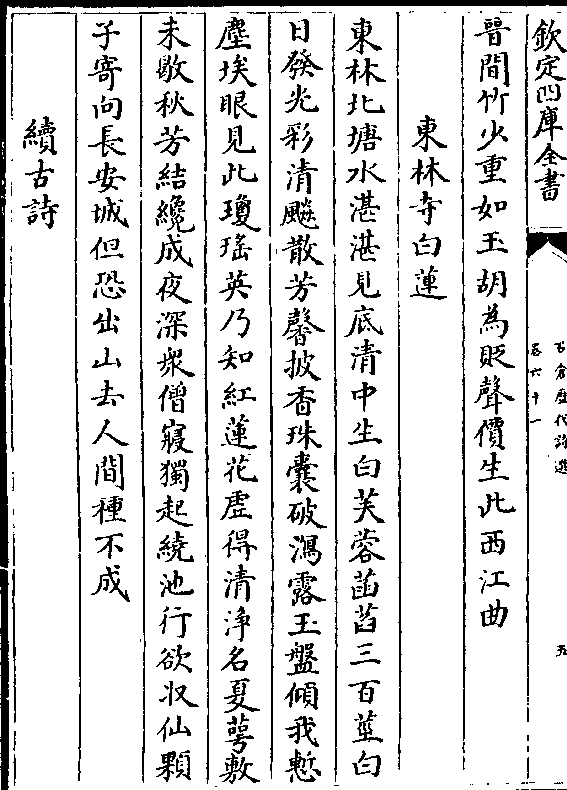 欽定四庫全書
石倉歷代詩選
卷六十一
五
晉間竹少重如玉胡為貶聲價生此西江曲
東林寺白蓮
東林北塘水湛湛見底清中生白芙蓉菡萏三百莖白
日發光彩清飈散芳馨披香珠囊破瀉露玉盤傾我慙
塵埃眼見此瓊瑤英乃知紅蓮花虛得清淨名夏蕚敷
未歇秋芳結纔成夜深衆僧寢獨起繞池行欲收仙顆
子寄向長安城但恐出山去人間種不成
續古詩